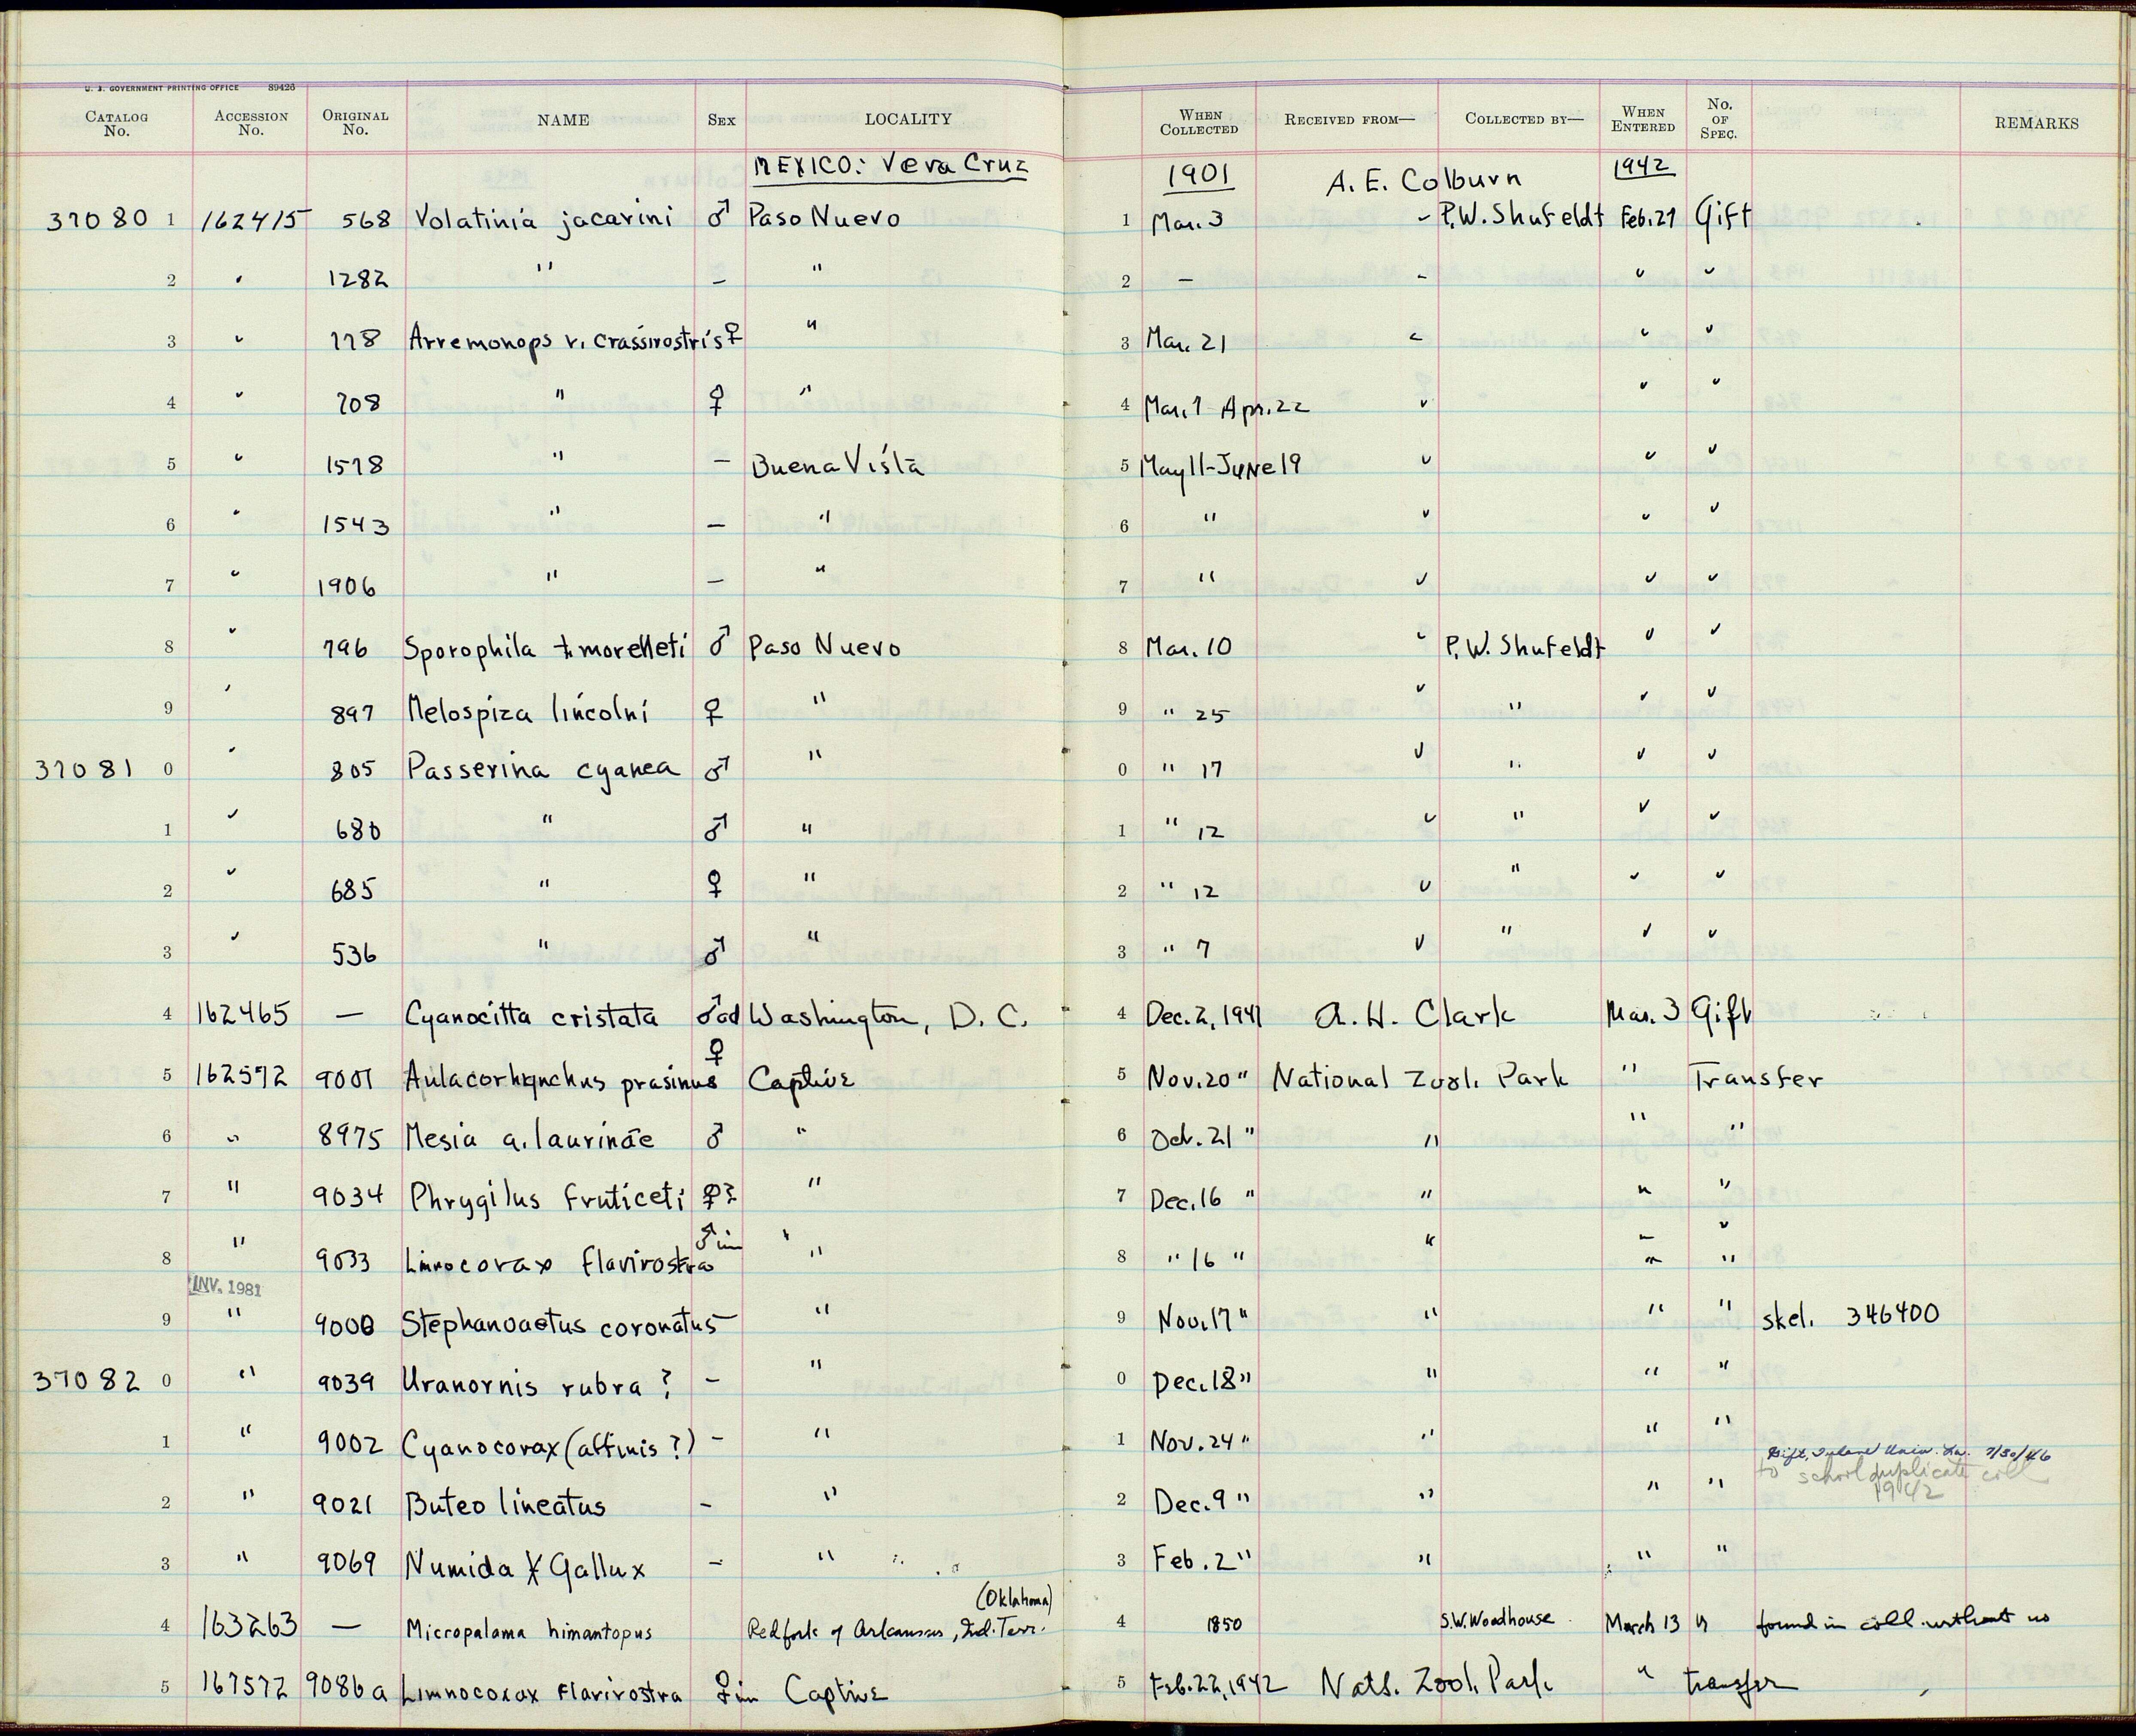 U. S. GOVERNMENT PRINTING OFFICE 89426
CATALOG No. ACCESSION No. ORIGINAL No. NAME SEX LOCALITY WHEN COLLECTED RECEIVED FROM— COLLECTED BY— WHEN ENTERED No. OF SPEC. REMARKS
MEXICO: Vera Cruz 1901 A. E. Colburn 1942
37080 1 162415 568 Volatinia jacarini ♂ Paso Nuevo 1 Mar. 3 - P.W. Shufeldt Feb. 27 Gift
2 " 1282 " – " 2 – - " "
3 " 778 Arremonops r. crassirostris ♀ " 3 Mar. 21 " " "
4 " 708 " ♀ " 4 Mar. 7 Apr. 22 " " "
5 " 1578 " – Buena Vista 5 May 11-June 19 " " "
6 " 1543 " – " 6 " " " "
7 " 1906 " – " 7 " " " "
8 " 796 Sporophila t. morelleti ♂ Paso Nuevo 8 Mar. 10 " P. W. Shufeldt " "
9 " 897 Melospiza lincolni ♀ " 9 " 25 " " " "
37081 0 " 805 Passerina cyanea ♂ " 0 " 17 " " " "
1 " 680 " ♂ " 1 " 12 " " " "
2 " 685 " ♀ " 2 " 12 " " " "
3 " 536 " ♂ " 3 " 7 " " " "
4 162465 — Cyanocitta cristata ♂ad Washington, D. C. 4 Dec. 2, 1941 A. H. Clark Mar. 3 Gift
5 162572 9001 Aulacorhynchus prasinus ♀ Captive 5 Nov. 20 " National Zool. Park " Transfer
6 " 8975 Mesia a. laurinae ♂ " 6 Oct. 21 " " " "
7 " 9034 Phrygilus fruticeti ♀? " 7 Dec. 16 " " " "
8 " 9033 Limnocorax flavirostra ♂ im " 8 " 16 " " " "
INV. 1981
9 " 9000 Stephanoaetus coronatus – " 9 Nov. 17 " " " " skel. 346400
37082 0 " 9039 Uranornis rubra ? – " 0 Dec. 18 " " " "
1 " 9002 Cyanocorax (affinis ?) – " 1 Nov. 24 " " " "
Gift, Tulane Univ. La. 7/30/46
to school duplicate coll
1942
2 " 9021 Buteo lineatus – " 2 Dec. 9 " " " "
3 " 9069 Numida X Gallux – " 3 Feb. 2 " " " "
(Oklahoma)
4 163263 — Micropalama himantopus Redfork of Arkansas, Ind. Terr. 4 1850 S.W. Woodhouse March 13 " found in coll. without no
5 167572 9086a Limnocorax flavirostra ♀ im Captive 5 Feb. 22, 1942 Natl. Zool. Park " transfer